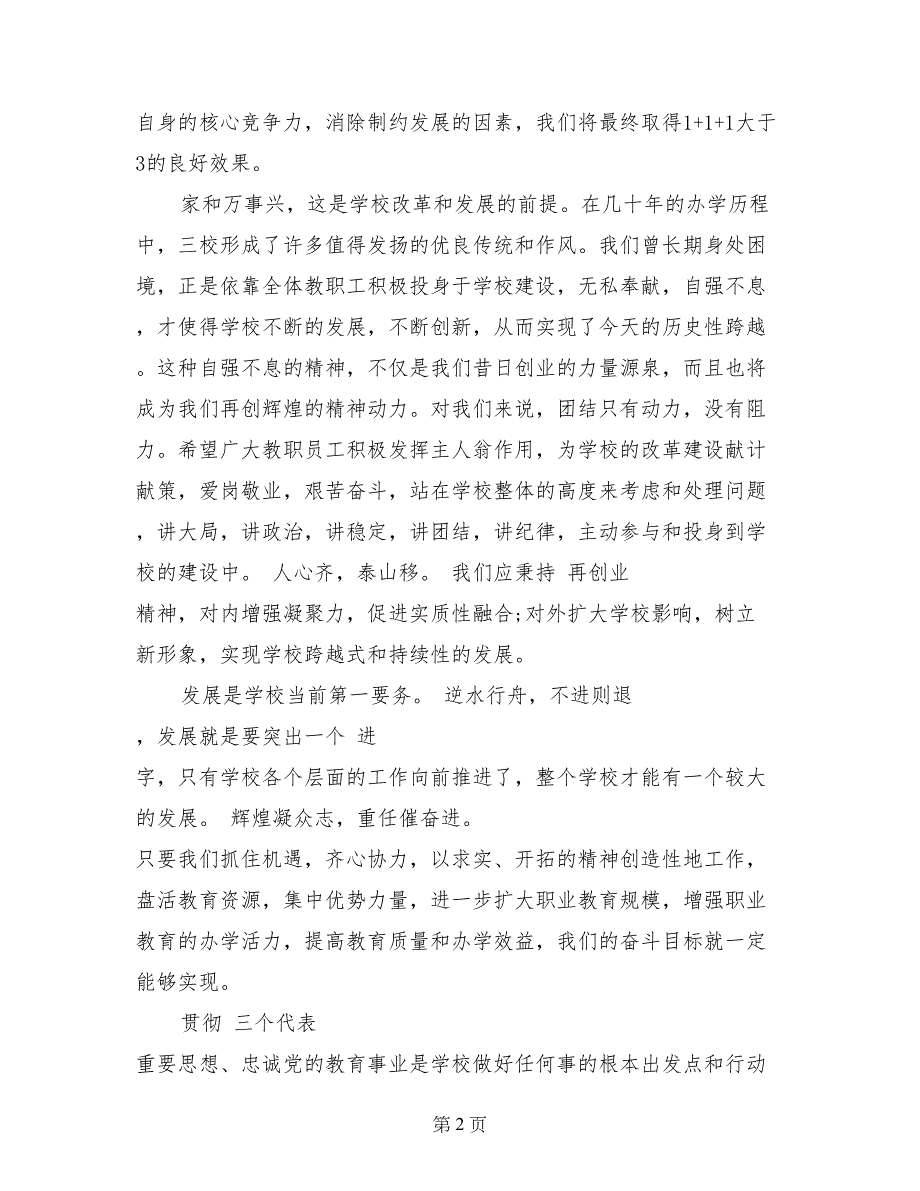 自身的核心竞争力，消除制约发展的因素，我们将最终取得1+1+1大于
3的良好效果。
家和万事兴，这是学校改革和发展的前提。在几十年的办学历程
中，三校形成了许多值得发扬的优良传统和作风。我们曾长期身处困
境，正是依靠全体教职工积极投身于学校建设，无私奉献，自强不息
，才使得学校不断的发展，不断创新，从而实现了今天的历史性跨越
。这种自强不息的精神，不仅是我们昔日创业的力量源泉，而且也将
成为我们再创辉煌的精神动力。对我们来说，团结只有动力，没有阻
力。希望广大教职员工积极发挥主人翁作用，为学校的改革建设献计
献策，爱岗敬业，艰苦奋斗，站在学校整体的高度来考虑和处理问题
，讲大局，讲政治，讲稳定，讲团结，讲纪律，主动参与和投身到学
校的建设中。 人心齐，泰山移。 我们应秉持 再创业
精神，对内增强凝聚力，促进实质性融合;对外扩大学校影响，树立
新形象，实现学校跨越式和持续性的发展。
发展是学校当前第一要务。 逆水行舟，不进则退
，发展就是要突出一个 进
字，只有学校各个层面的工作向前推进了，整个学校才能有一个较大
的发展。 辉煌凝众志，重任催奋进。
只要我们抓住机遇，齐心协力，以求实、开拓的精神创造性地工作，
盘活教育资源，集中优势力量，进一步扩大职业教育规模，增强职业
教育的办学活力，提高教育质量和办学效益，我们的奋斗目标就一定
能够实现。
贯彻 三个代表
重要思想、忠诚党的教育事业是学校做好任何事的根本出发点和行动
第 2 页